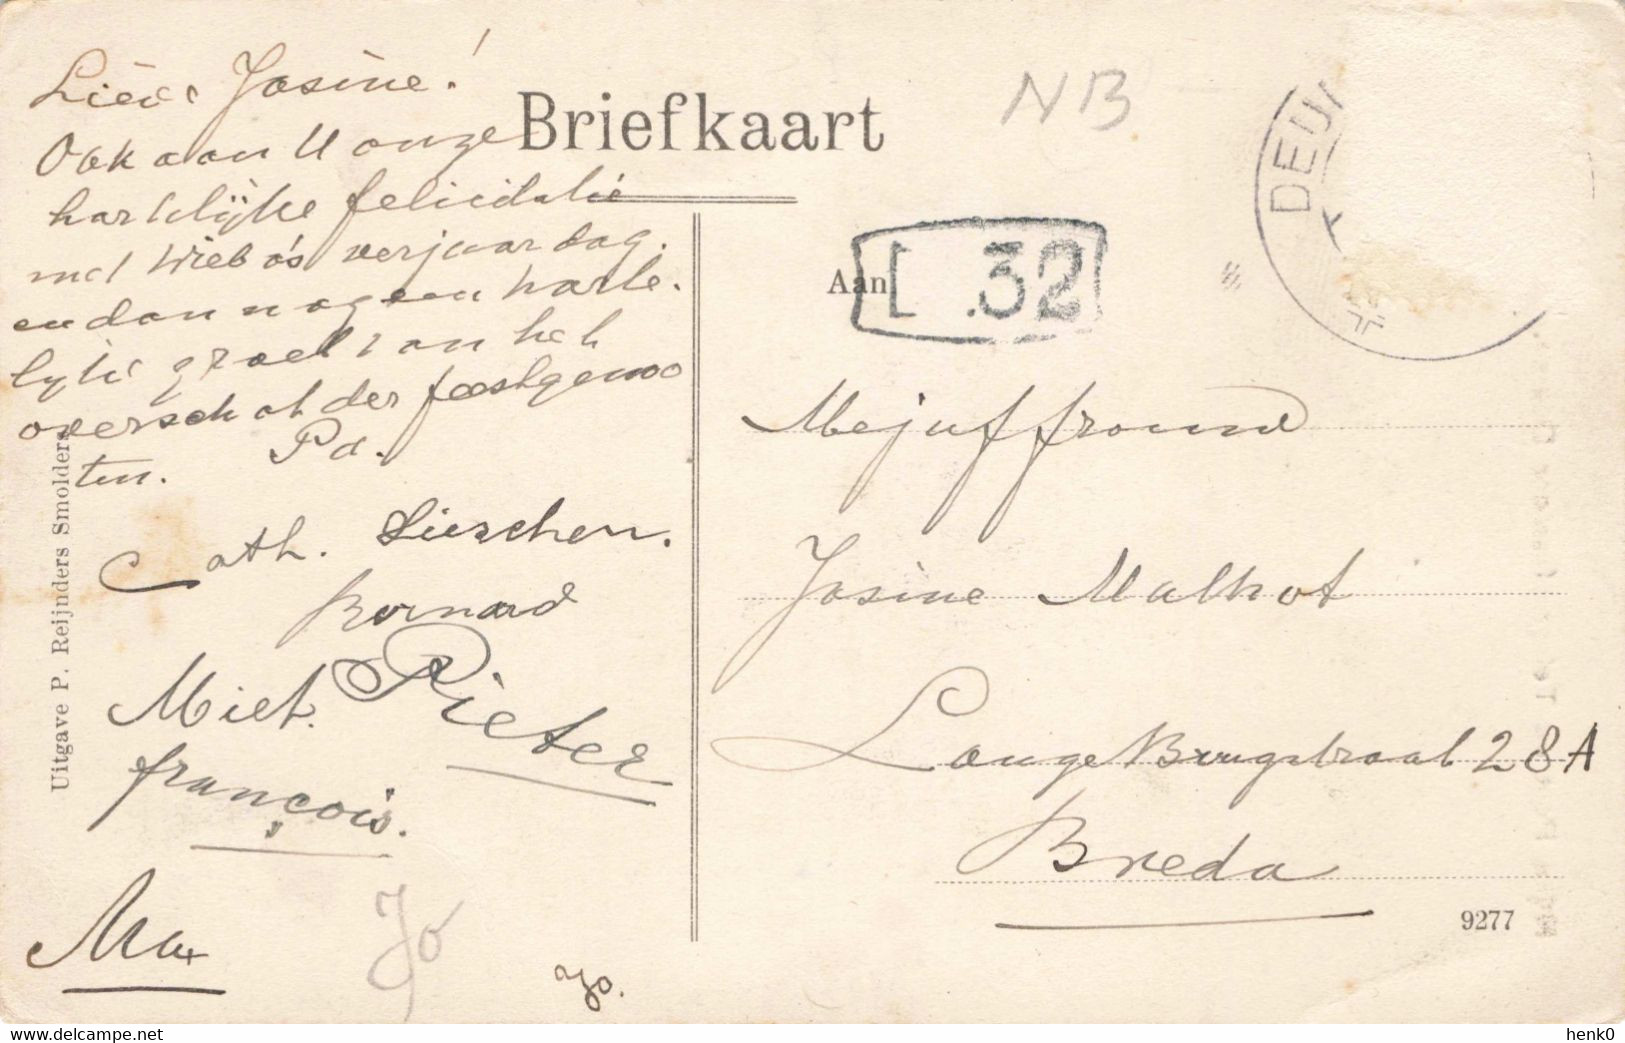 Lieve Josine!
Ook aan U onze
hartelijke felicitatie
met Wiebo's verjaardag.
en dan nog een harte-
lijke groet van het
overschot der feestgenoo
ten. Pa.
Cath. Lieschen.
Bernard
Miet. Pieter
françois.
Max
Jo
Jo.
Uitgave P. Reijnders Smolders
Briefkaart
NB
DEUR
Aan
L .32
Mejuffrouw
Josine Malhot
Lange Brugstraat 28A
Breda
9277
www.delcampe.net
henk0